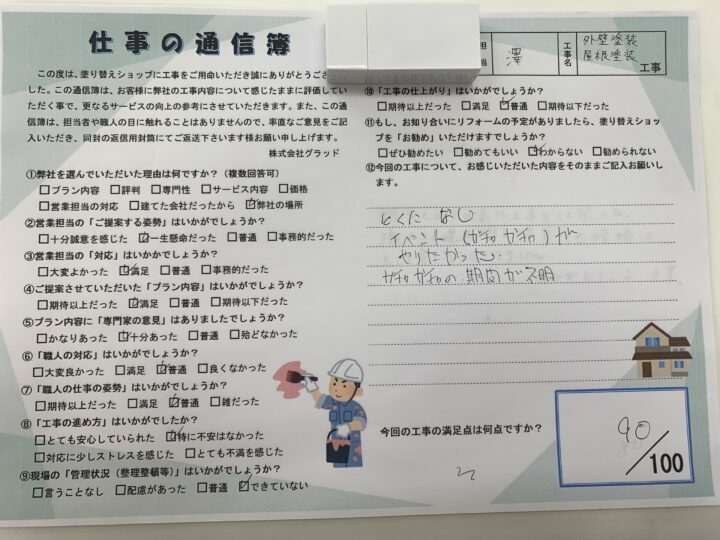 仕事の通信簿
この度は、塗り替えショップに工事をご用命いただき誠にありがとうござ
した。この通信簿は、お客様に弊社の工事内容について感じたままに評価してい
ただく事で、更なるサービスの向上の参考にさせていただきます。また、この通
信簿は、担当者や職人の目に触れることはありませんので、率直なご意見をご記
入いただき、同封の返信用封筒にてご返送下さいます様お願い申し上げます。
株式会社グラッド
①弊社を選んでいただいた理由は何ですか？（複数回答可）
□プラン内容 □評判 □専門性 □サービス内容 □価格
□営業担当の対応 □建てた会社だったから ☑弊社の場所
②営業担当の「ご提案する姿勢」はいかがでしょうか？
□十分誠意を感じた ☑一生懸命だった □普通 □事務的だった
③営業担当の「対応」はいかかでしょうか？
□大変よかった ☑満足 □普通 □事務的だった
④ご提案させていただいた「プラン内容」はいかがでしょうか？
□期待以上だった ☑満足 □普通 □期待以下だった
⑤プラン内容に「専門家の意見」はありましたでしょうか？
□かなりあった ☑十分あった □普通 □殆どなかった
⑥「職人の対応」はいかがでしょうか？
□大変良かった □満足 ☑普通 □良くなかった
⑦「職人の仕事の姿勢」はいかがでしょうか？
□期待以上だった □満足 ☑普通 □雑だった
⑧「工事の進め方」はいかがでしたか？
□とても安心していられた ☑特に不安はなかった
□対応に少しストレスを感じた □とても不満を感じた
⑨現場の「管理状況（整理整頓等）」はいかがでしょうか？
□言うことなし □配慮があった □普通 ☑できていない
担当 澤 工事名 外壁塗装
屋根塗装 工事
⑩「工事の仕上がり」はいかがでしょうか？
□期待以上だった □満足 ☑普通 □期待以下だった
⑪もし、お知り合いにリフォームの予定がありましたら、塗り替えショッ
プを「お勧め」いただけますでしょうか？
□ぜひ勧めたい □勧めてもいい ☑わからない □勧められない
⑫今回の工事について、お感じいただいた内容をそのままご記入お願いし
ます。
とくに なし
イベント（ガチャガチャ）が
やりたかった.
ガチャガチャの 期間が不明
今回の工事の満足点は何点ですか？
90
/100